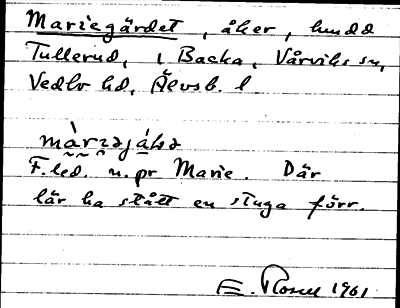 Mariegärdet, åker, hmdd
Tullerud, 1 Backa, Vårviks sn,
Vedbo hd, Älvsb. l
F.led. n.pr Marie. Där
lär ha stått en stuga förr.
E. 1961